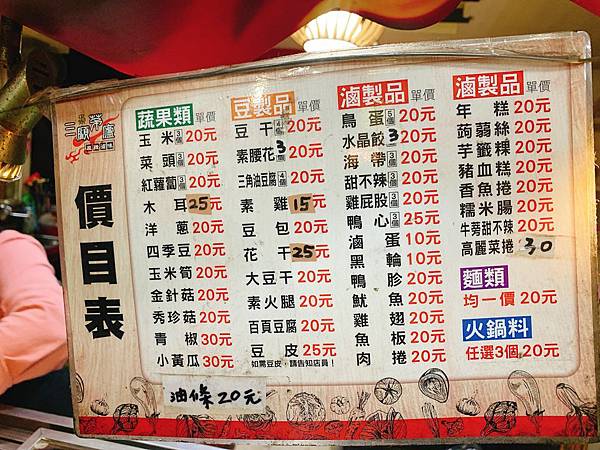 三顧茅廬
價目表
蔬果類 單價
玉米 3個 20元
菜頭 3個 20元
紅蘿蔔 3個 20元
木耳 25元
洋蔥 20元
四季豆 20元
玉米筍 20元
金針菇 20元
秀珍菇 20元
青椒 30元
小黃瓜 30元
油條20元
豆製品 單價
豆干 4個 20元
素腰花 3個 20元
三角油豆腐 4個 20元
素雞 15元
豆包 20元
花干 25元
大豆干 20元
素火腿 20元
百頁豆腐 20元
豆皮 25元
如需豆皮,請告知店員!
滷製品 單價
鳥蛋 5個 20元
水晶餃 3 20元
海帶 3個 20元
甜不辣 3個 20元
雞屁股 3個 20元
鴨心 3個 25元
滷蛋 10元
黑輪 10元
鴨胗 20元
魷魚 20元
雞翅 20元
魚板 20元
肉捲 20元
滷製品 單價
年糕 20元
蒟蒻絲 20元
芋籤粿 20元
豬血糕 20元
香魚捲 20元
糯米腸 20元
牛蒡甜不辣 20元
高麗菜捲 30
麵類
均一價 20元
火鍋料
任選3個 20元